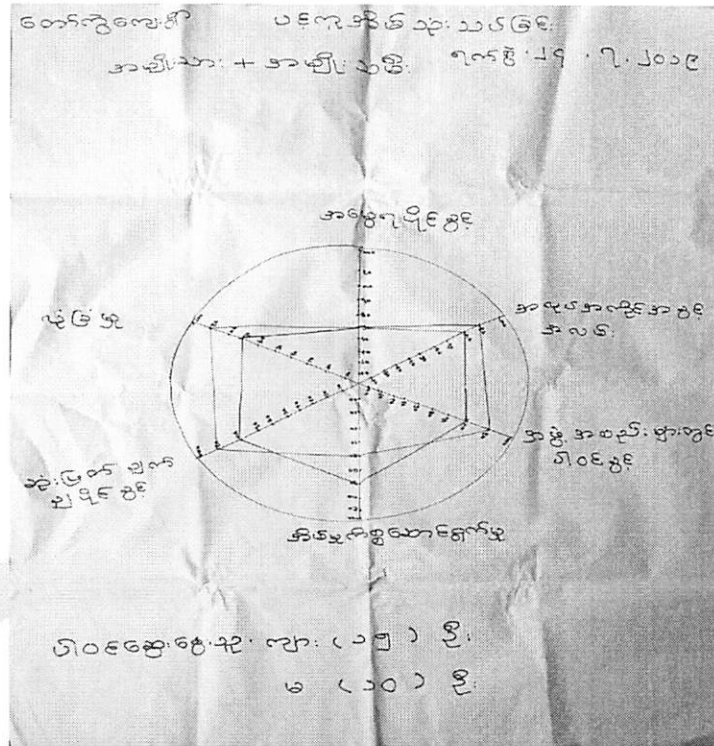 တော်ကွဲကျေးရွာ ပင့်ကူအိမ်သုံးသပ်ခြင်း
အမျိုးသား + အမျိုးသမီး ရက်စွဲ ၂၅ . ၇ . ၂၀၁၉
အမွေရပိုင်ခွင့်
လုံခြုံမှု
အလုပ်အကိုင်အခွင့်
အလမ်း
အဖွဲ့အစည်းများတွင်
ပါဝင်ခွင့်
ဆုံးဖြတ်ချက်
ချပိုင်ခွင့်
အိမ်မှုကိစ္စဆောင်ရွက်မှု
ပါဝင်ဆွေးနွေးသူ ကျား (၁၅) ဦး
မ (၁၀) ဦး